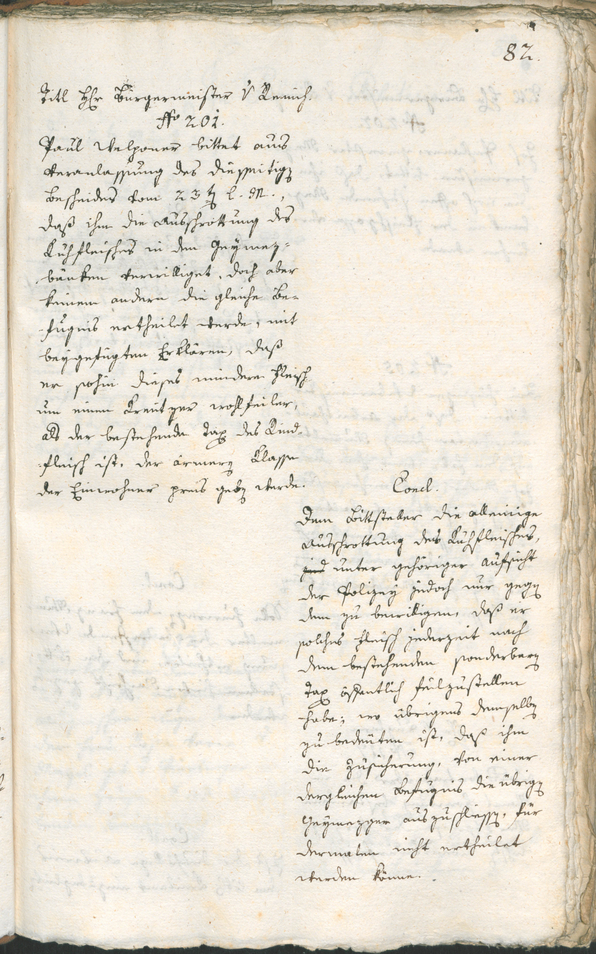 82.
Titl Hr Bürgermeister v Remich.
No 201.
Paul Welponer bittet aus
Veranlassung des diesseitigen
Bescheides vom 23ten l. M.,
daß ihm die Ausschrottung des
Kühfleisches in den Geymez-
bänken verwilliget, doch aber
keinem andern die gleiche Be-
fugnis ertheilet werde, mit
beygefügten Erklären, daß
er sohin dieses mindere Fleisch
um einen Kreutzer wohlfeiler,
als der bestehende Tax des Rind-
fleisch ist, der ärmern Classe
der Einwohner preis geben werde.
Concl.
Dem Bittsteller die alleinige
Ausschrottung des Kühfleisches,
unter gehöriger Aufsicht
der Polizey jedoch nur gegen
dem zu bewilligen, daß er
solches Fleisch jederzeit nach
dem bestehenden sonderbaren
Tax öffentlich feilzustellen
habe; wo übrigens demselben
zu bedeuten ist, daß ihm
die Zusicherung, von einer
dergleichen Befugnis die übrigen
Geymezger auszuschliessen, für
dermalen nicht ertheilet
werden könne.